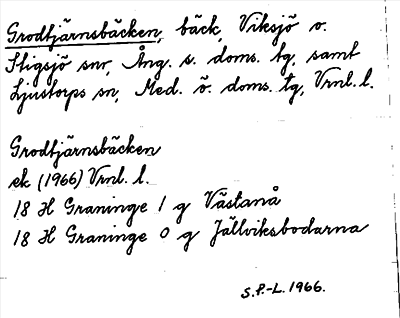 Grodtjärnsbäcken, bäck, Viksjö o.
Stigsjö snr, Ång. s. doms. tg, samt
Ljustorps sn, Med. ö. doms. tg, Vrnl. l.
Grodtjärnsbäcken
ek (1966) Vrnl. l.
18 H Graninge 1 g Västanå
18 H Graninge 0 g Jällviksbodarna
S.P.-L. 1966.